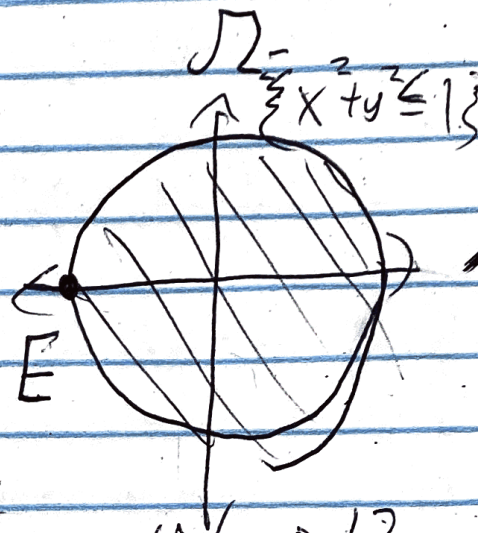 Ω =
{x²+y²≤1}
E